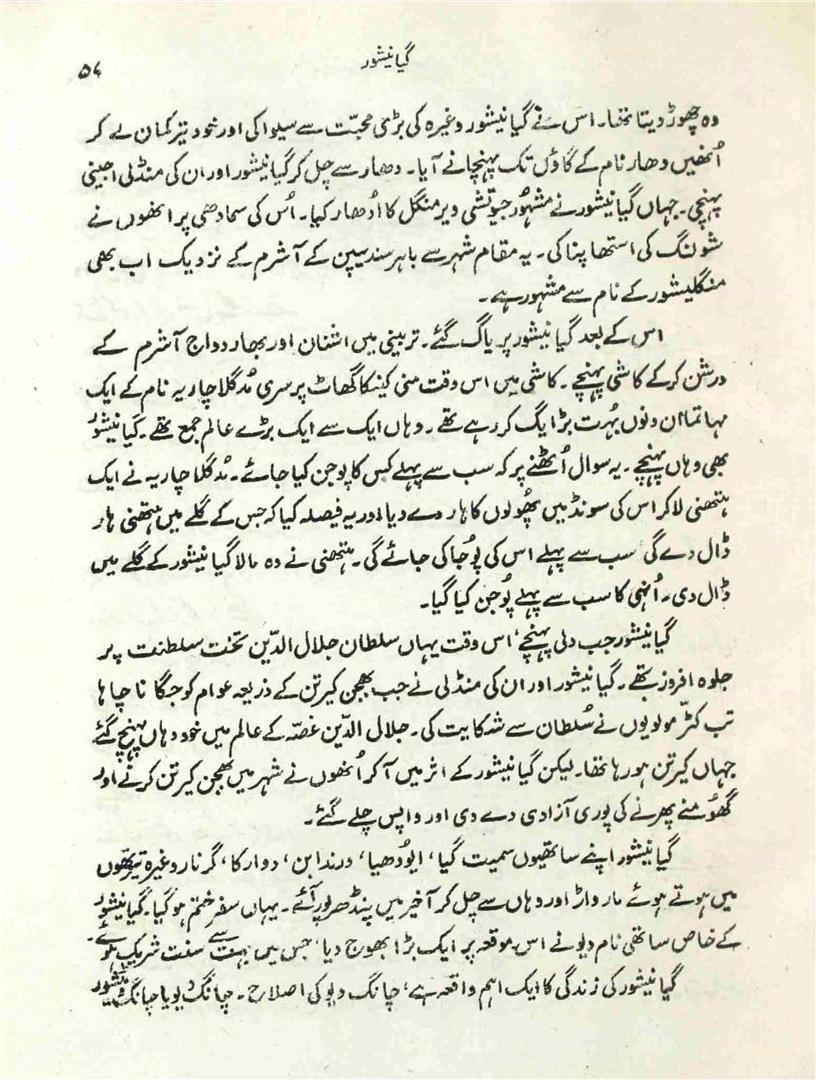 گیانیشور
۵۷
وہ چھوڑ دیتا تھا۔ اس نے گیانیشور وغیرہ کی بڑی محبّت سے سیوا کی اور خود تیر کمان لے کر
اُنھیں دھار نام کے گاؤں تک پہنچانے آیا۔ دھار سے چل کر گیانیشور اور ان کی منڈلی اجینی
پہنچی۔ جہاں گیانیشور نے مشہُور جیوتشی ویر منگل کا اُدھار کیا۔ اُس کی سمادھی پر انھوں نے
شولنگ کی استھاپنا کی۔ یہ مقام شہر سے باہر سندیپن کے آشرم کے نزدیک اب بھی
منگلیشور کے نام سے مشہور ہے۔
اس کے بعد گیانیشور پریاگ گئے۔ تربینی میں اشنان اور بھاردواج آشرم کے
درشن کرکے کاشی پہنچے۔ کاشی میں اس وقت منی کینکا گھاٹ پر سری مُدگلاچاریہ نام کے ایک
مہاتما ان دنوں بہُت بڑا یگ کر رہے تھے۔ وہاں ایک سے ایک بڑے عالم جمع تھے۔ گیانیشور
بھی وہاں پہنچے۔ یہ سوال اُٹھنے پر کہ سب سے پہلے کس کا پوجن کیا جائے۔ مُدگلاچاریہ نے ایک
ہتھنی لاکر اس کی سونڈ میں پھُولوں کا ہار دے دیا اور یہ فیصلہ کیا کہ جس کے گلے میں ہتھنی ہار
ڈال دے گی سب سے پہلے اس کی پُوجا کی جائے گی۔ ہتھنی نے وہ مالا گیانیشور کے گلے میں
ڈال دی۔ اُنہی کا سب سے پہلے پُوجن کیا گیا۔
گیانیشور جب دلی پہنچے، اس وقت یہاں سلطان جلال الدّین تخت سلطنت پر
جلوہ افروز تھے۔ گیانیشور اور ان کی منڈلی نے جب بھجن کیرتن کے ذریعہ عوام کو جگانا چاہا
تب کٹّر مولویوں نے سُلطان سے شکایت کی۔ جلال الدّین غصّہ کے عالم میں خود وہاں پہنچ گئے
جہاں کیرتن ہو رہا تھا۔ لیکن گیانیشور کے اثر میں آکر اُنھوں نے شہر میں بھجن کیرتن کرنے اور
گھُومنے پھرنے کی پوری آزادی دے دی اور واپس چلے گئے۔
گیانیشور اپنے ساتھیوں سمیت گیا، ایودھیا، ورندابن، دوارکا، گرنار وغیرہ تیرتھوں
میں ہوتے ہوئے مارواڑ اور وہاں سے چل کر آخیر میں پنڈھرپور آئے۔ یہاں سفر ختم ہو گیا۔ گیانیشور
کے خاص ساتھی نام دیو نے اس موقعہ پر ایک بڑا بھوج دیا، جس میں بہت سے سنت شریک ہوئے۔
گیانیشور کی زندگی کا ایک اہم واقعہ ہے، چانگ دیو کی اصلاح۔ چانگ دیو یا چانگ ویشور